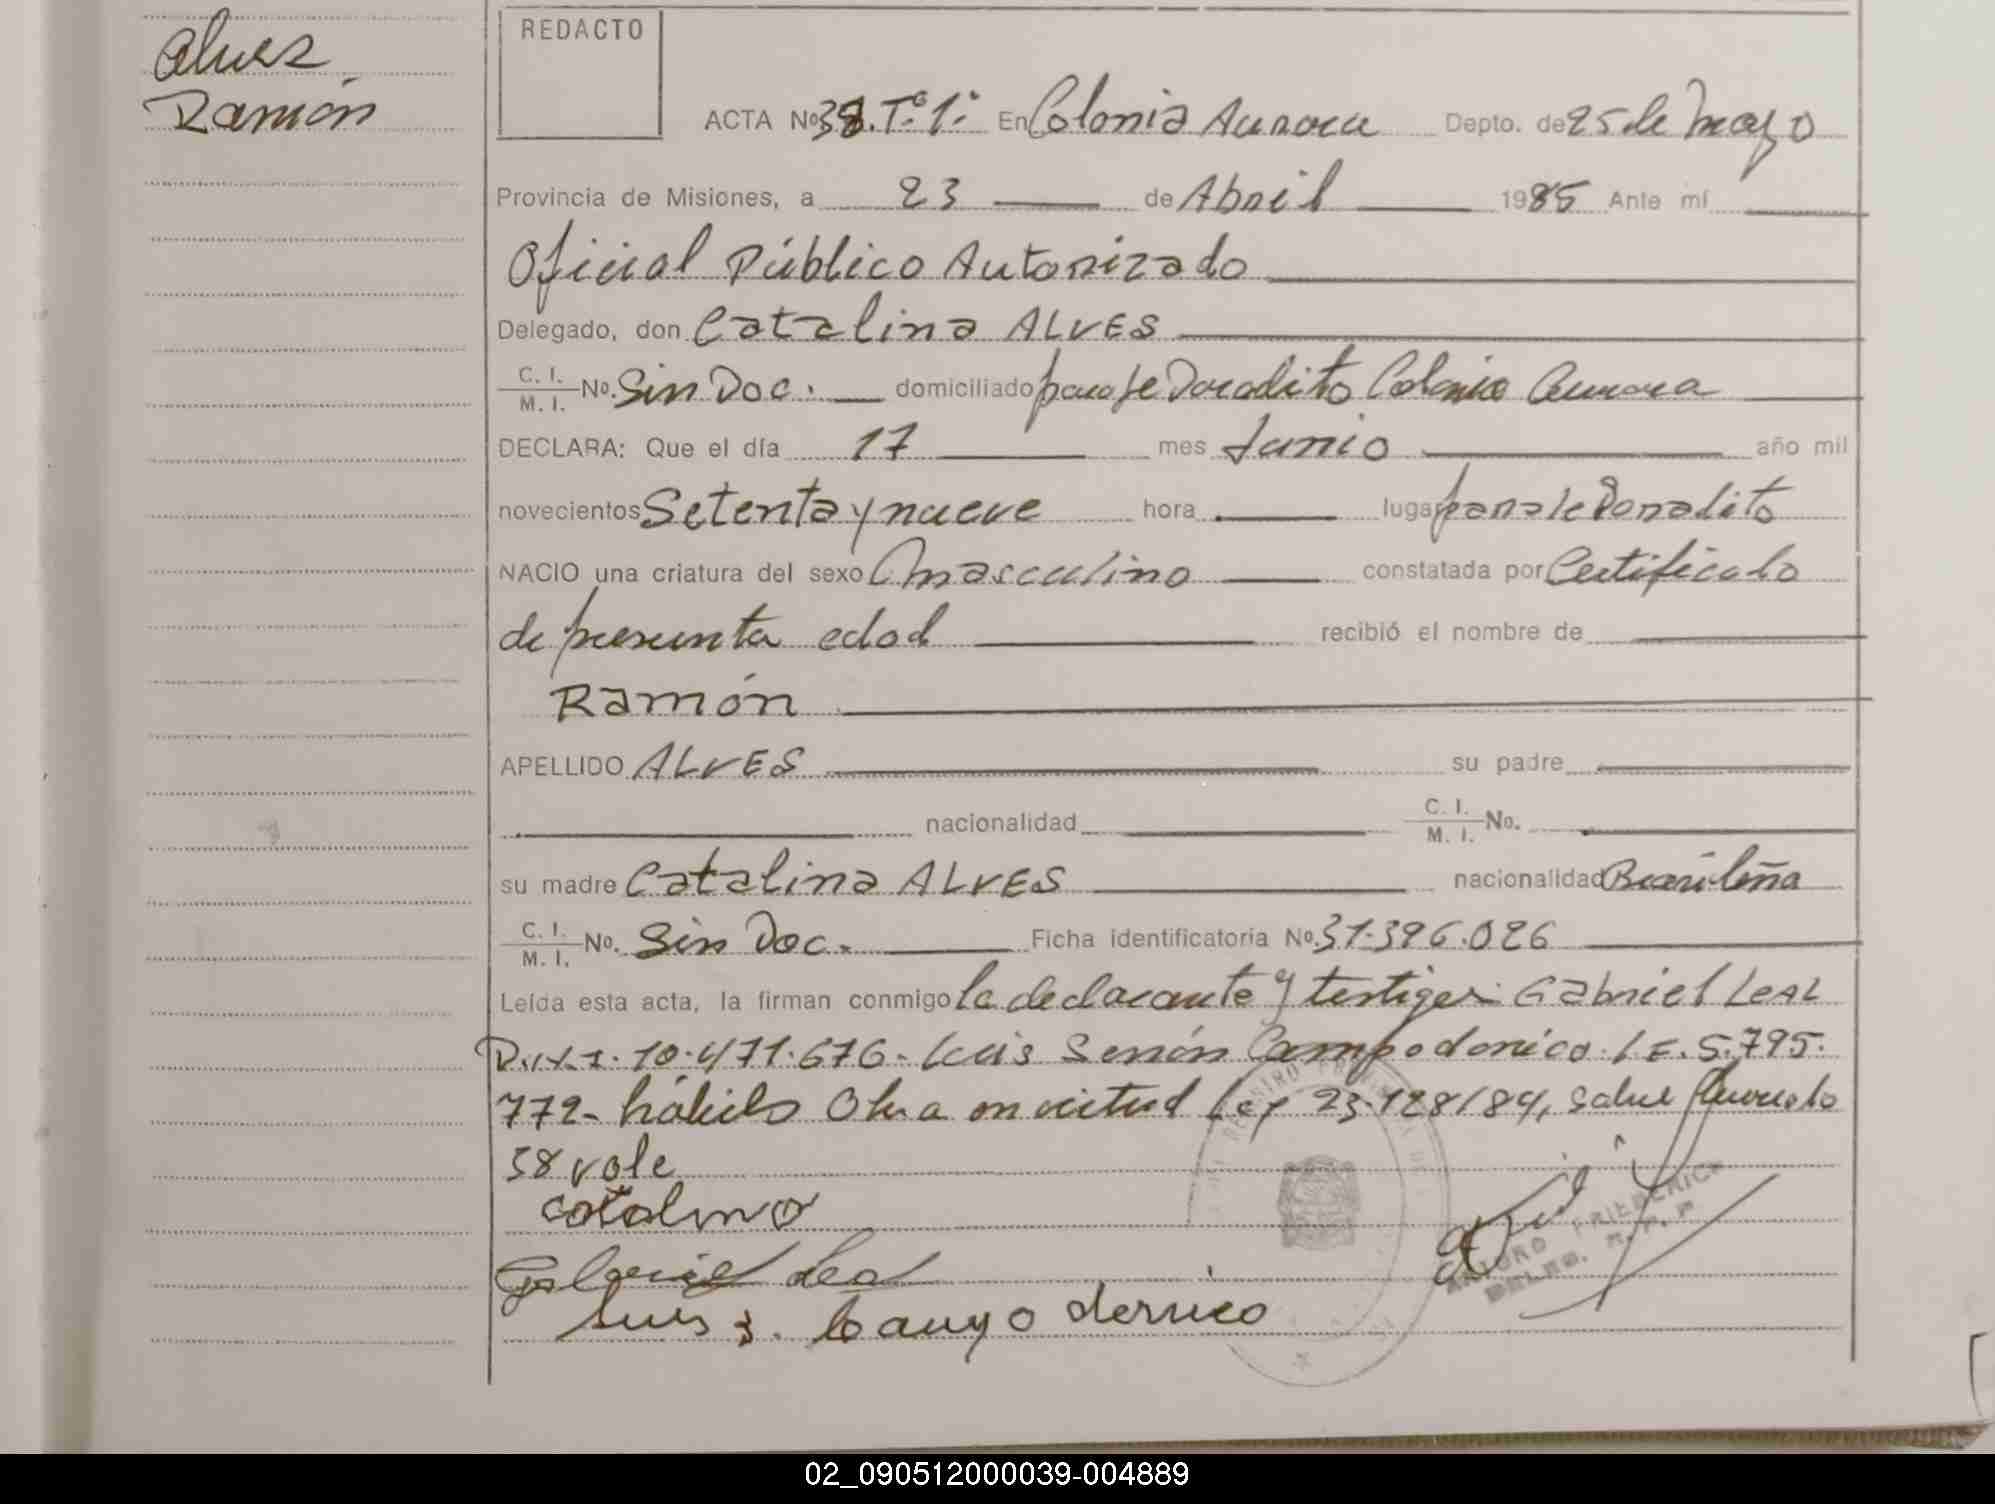 Alves
Ramón
REDACTO
ACTA Nº 38. Tº 1º En Colonia Aurora Depto. de 25 de Mayo
Provincia de Misiones, a 23 de Abril 1985 Ante mí
Oficial Público Autorizado
Delegado, don Catalina ALVES
C. I. / M. I. No. Sin Doc. domiciliado paraje Doradito Colonia Aurora
DECLARA: Que el día 17 mes Junio año mil
novecientos Setenta y nueve hora lugar paraje Doradito
NACIO una criatura del sexo Masculino constatada por Certificado
de presunta edad recibió el nombre de
Ramón
APELLIDO ALVES su padre
nacionalidad C. I. / M. I. No.
su madre Catalina ALVES nacionalidad Brasileña
C. I. / M. I. No. Sin Doc. Ficha identificatoria No. 31.396.026
Leída esta acta, la firman conmigo la declarante y testigos: Gabriel LEAL
D.N.I. 10.471.676- Luis Senón Campodonico L.E. 5.795.
772- hábiles Obra en virtud Ley 23.128/84, Salve
38 vale
catalina
Gabriel Leal
Luis S. Campodonico
ARTURO FRIEDERICH
DELEG. R. P. P
02_090512000039-004889